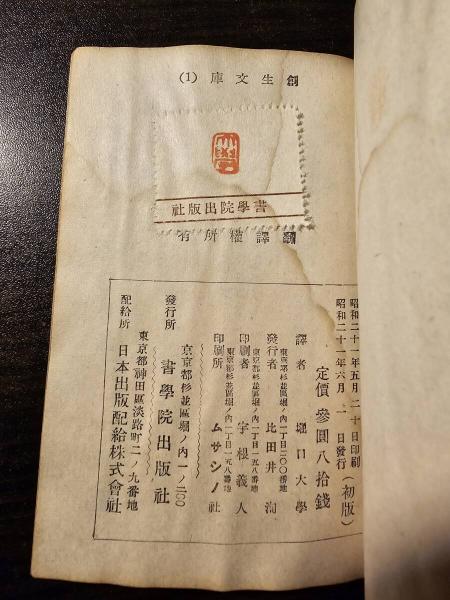 創生文庫（1）
書學院出版社
飜譯權所有
昭和二十一年五月二十日印刷
昭和二十一年六月一日發行（初版）
定價參圓八拾錢
譯者　堀口大學
東京都杉並區堀ノ內一丁目二〇〇番地
發行者　比田井洵
東京都杉並區堀ノ內一丁目一五八番地
印刷者　宇根義人
東京都杉並區堀ノ內一丁目一五八番地
印刷所　ムサシノ社
東京都杉並區堀ノ內一ノ二〇〇
發行所　書學院出版社
東京都神田區淡路町二ノ九番地
配給所　日本出版配給株式會社